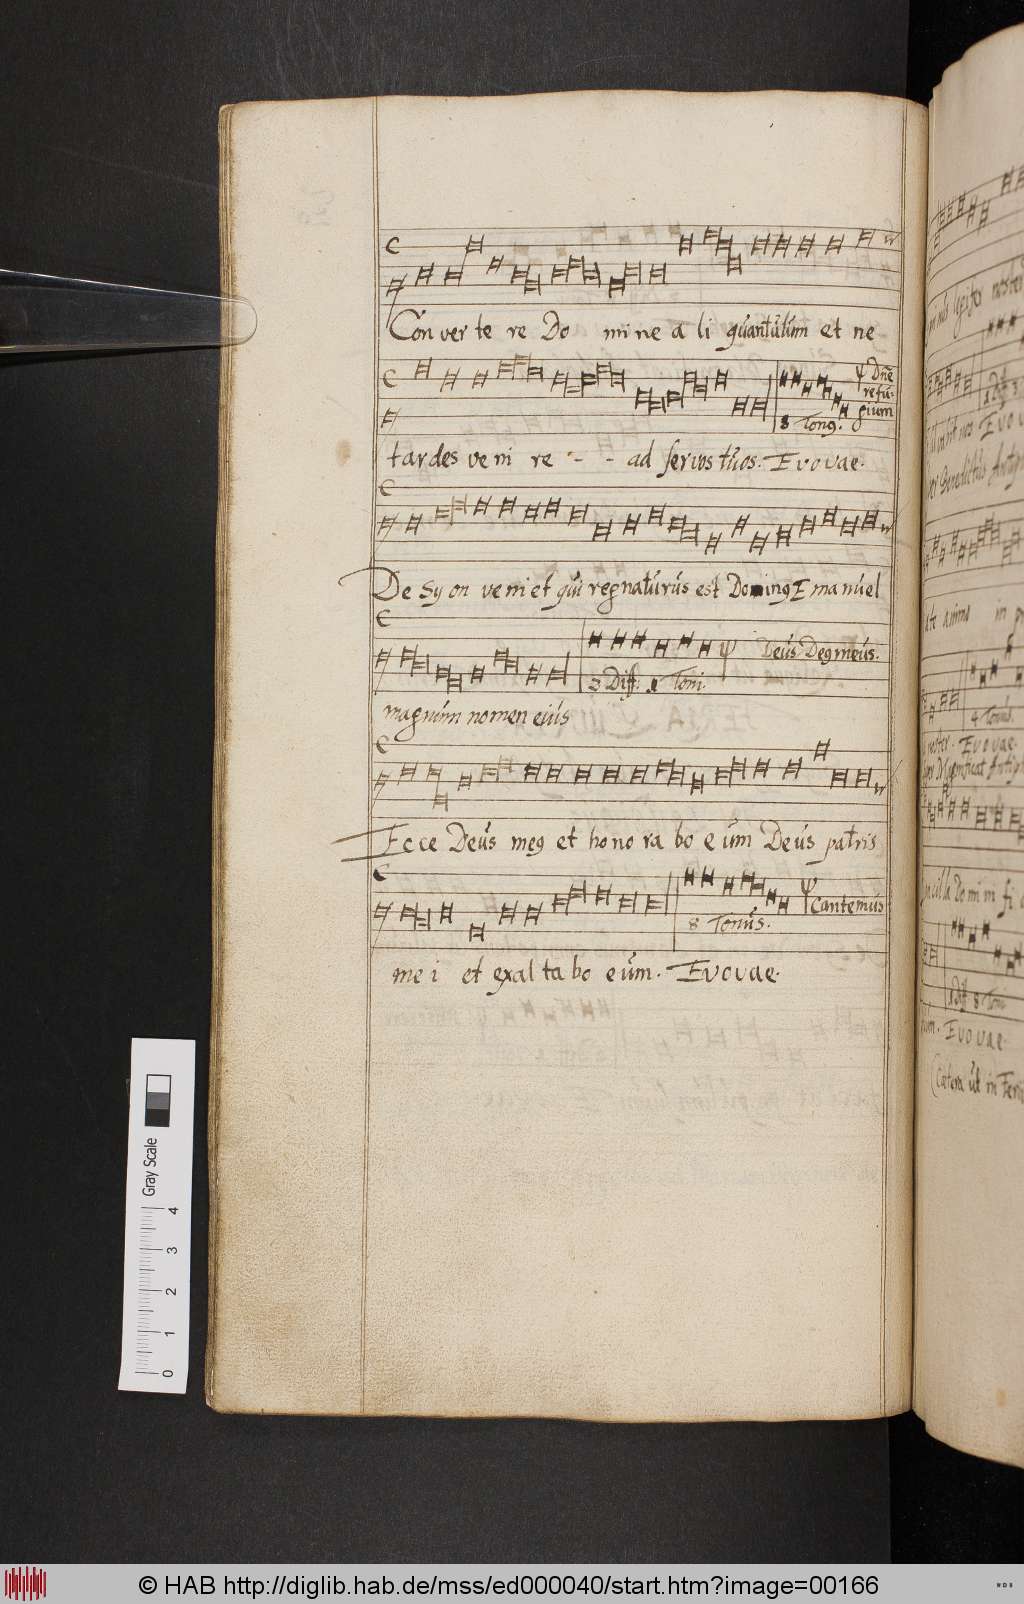 Con ver te re Do mi ne a li quantulum et ne
Dn̄e
refu-
gium
8 Tonꝰ.
tardes ve ni re - - ad servos tuos. Evovae.
De Syon veniet qui regnaturus est Dominꝰ Emanuel
Deus Deꝰ meus.
3 Diff: 1 Toni.
magnum nomen eius
Ecce Deus meꝰ et honora bo eum Deus patris
Cantemus
8 Tonus.
me i et exal ta bo eum. Evovae.
4 Tonus.
Evovae.
Magnificat
Evovae
Cætera ut in Feria
Gray Scale
4
3
2
1
0
© HAB http://diglib.hab.de/mss/ed000040/start.htm?image=00166